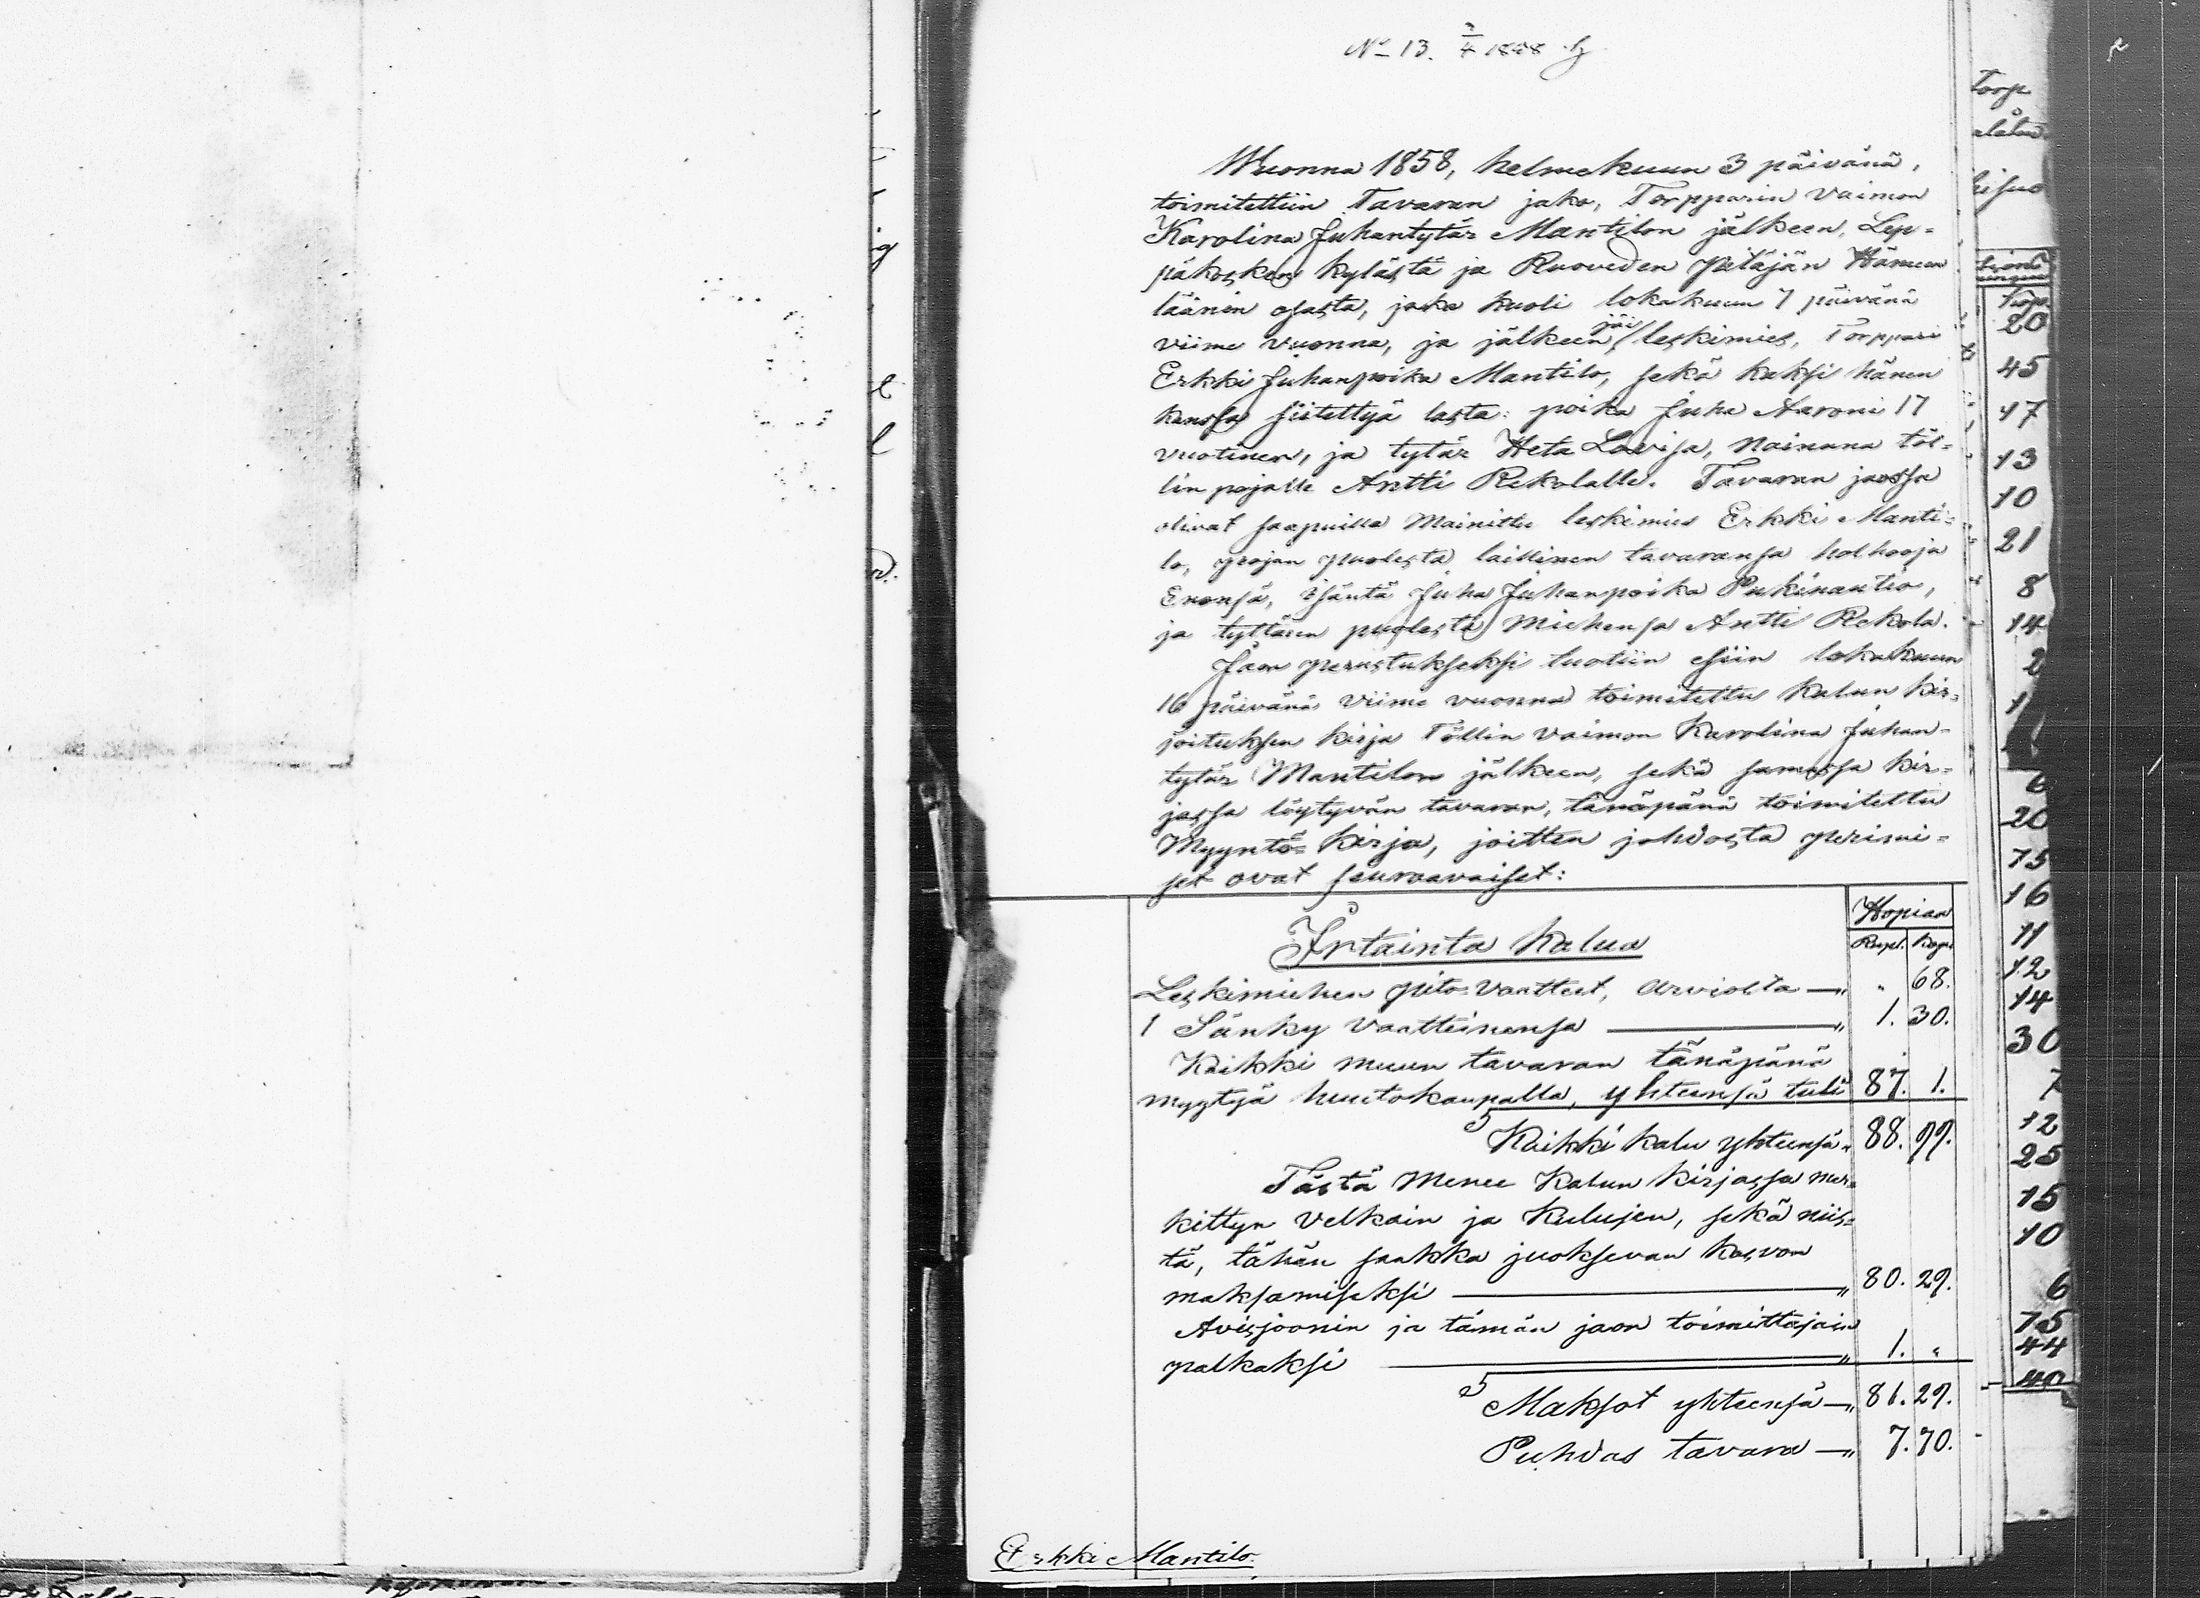 No 13. 7/4 1858.
Wuonna 1858, helmekuun 3 päivänä,
toimitettiin Tavaran jako, Torpparin Vaimon
Karolina Juhantytär Mantilon jälkeen, Lep=
päkosken kylästä ja Ruoveden pitäjän Hämeen
läänin osasta, joka kuoli lokakuun 7 päivänä
viime vuonna, ja jälkeen jäi leskimies, Torppari
Erkki Juhanpoika Mantilo, sekä kaksi hänen
kanssa siitettyä lasta: poika Juha Aaroni 17
vuotinen, ja tytär Heta Lovisa, Nainunna töl=
lin pojalle Antti Rekolalle. Tavaran jaossa
olivat saapuilla Mainittu leskimies Erkki Manti=
lo, pojan puolesta laillinen tavaransa holhooja
Enonsä, isäntä Juha Juhanpoika Pukinautio,
ja tyttären puolesta Miehensä Antti Rekola.
Jaon perustukseksi tuotiin esiin lokakuun
16 päivänä viime vuonna toimitettu Kalun kir=
joituksen kirja Töllin Vaimon Karolina Juhan=
tytär Mantilon jälkeen, sekä samassa kir=
jassa löytyvän tavaran, tänäpänä toimitettu
Myyntö=kirja, joitten johdosta perimi=
set ovat seuraavaiset:
Hopiaa
Rupl. Kop.
Irtainta Kalua
Leskimiehen pito-Vaatteet, arviolta — " " 68.
1 Sänky Vaatteinensa — " 1. 30.
Kaikki muun tavaran tänäpänä
myytyä huutokaupalla, yhteensä tuli 87. 1.
Kaikki kalu yhteensä " 88. 99.
Tästä Menee Kalun kirjassa mer=
kittyn Velkain ja Kulujen, sekä niis=
tä, tähän saakka juoksevan kasvon
maksamiseksi — " 80. 29.
Avisjoonin ja tämän jaon toimittajain
palkaksi — " 1. "
Maksot yhteensä — " 81. 29.
Puhdas tavara — " 7. 70.
Erkki Mantilo.
Torp
Kop.
20
45
17
13
10
21
8
14
2
6
20
75
16
11
12
14
30
7
12
25
15
10
6
75
44